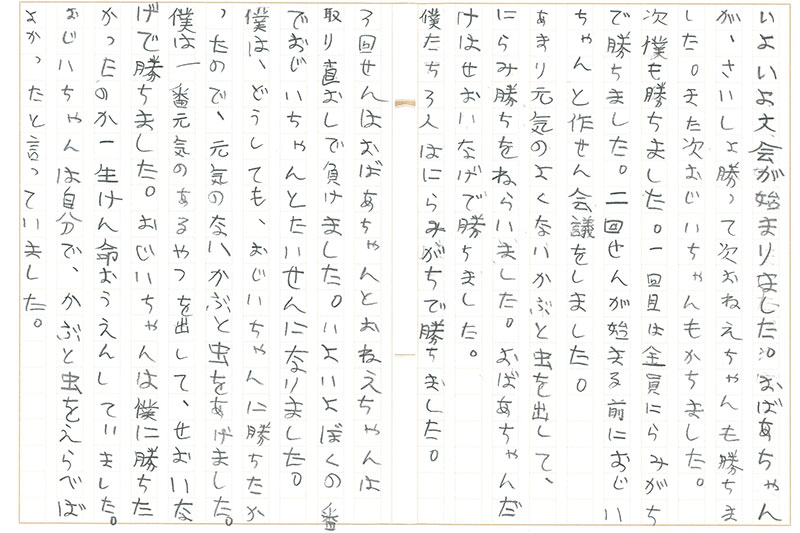 いよいよ大会が始まりました。おばあちゃん
が、さいしょ勝って次おねえちゃんも勝ちま
した。また次おじいちゃんもかちました。
次僕も勝ちました。一回目は全員にらみがち
で勝ちました。二回せんが始まる前におじい
ちゃんと作せん会議をしました。
あまり元気のよくないかぶと虫を出して、
にらみ勝ちをねらいました。おばあちゃんだ
けはせおいなげで勝ちました。
僕たち3人はにらみがちで勝ちました。
3回せんはおばあちゃんとおねえちゃんは
取り直おしで負けました。いよいよぼくの番
でおじいちゃんとたいせんになりました。
僕は、どうしても、おじいちゃんに勝ちたか
ったので、元気のないかぶと虫をあげました。
僕は一番元気のあるやつを出して、せおいな
げで勝ちました。おじいちゃんは僕に勝ちた
かったのか一生けん命おうえんしていました。
おじいちゃんは自分で、かぶと虫をえらべば
よかったと言っていました。